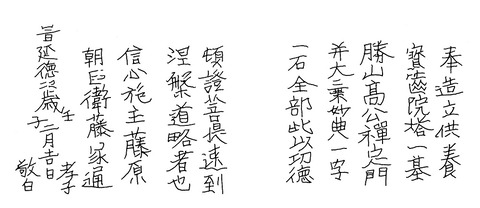 奉造立供養
寳齒院塔一基
勝山髙公禪定門
并大乗妙典一字
一石全部此以功德
頓證菩提速到
涅槃道略者也
信心施主藤原
朝臣衛藤家通
生孝子
旹延德四歳子二月吉日敬白